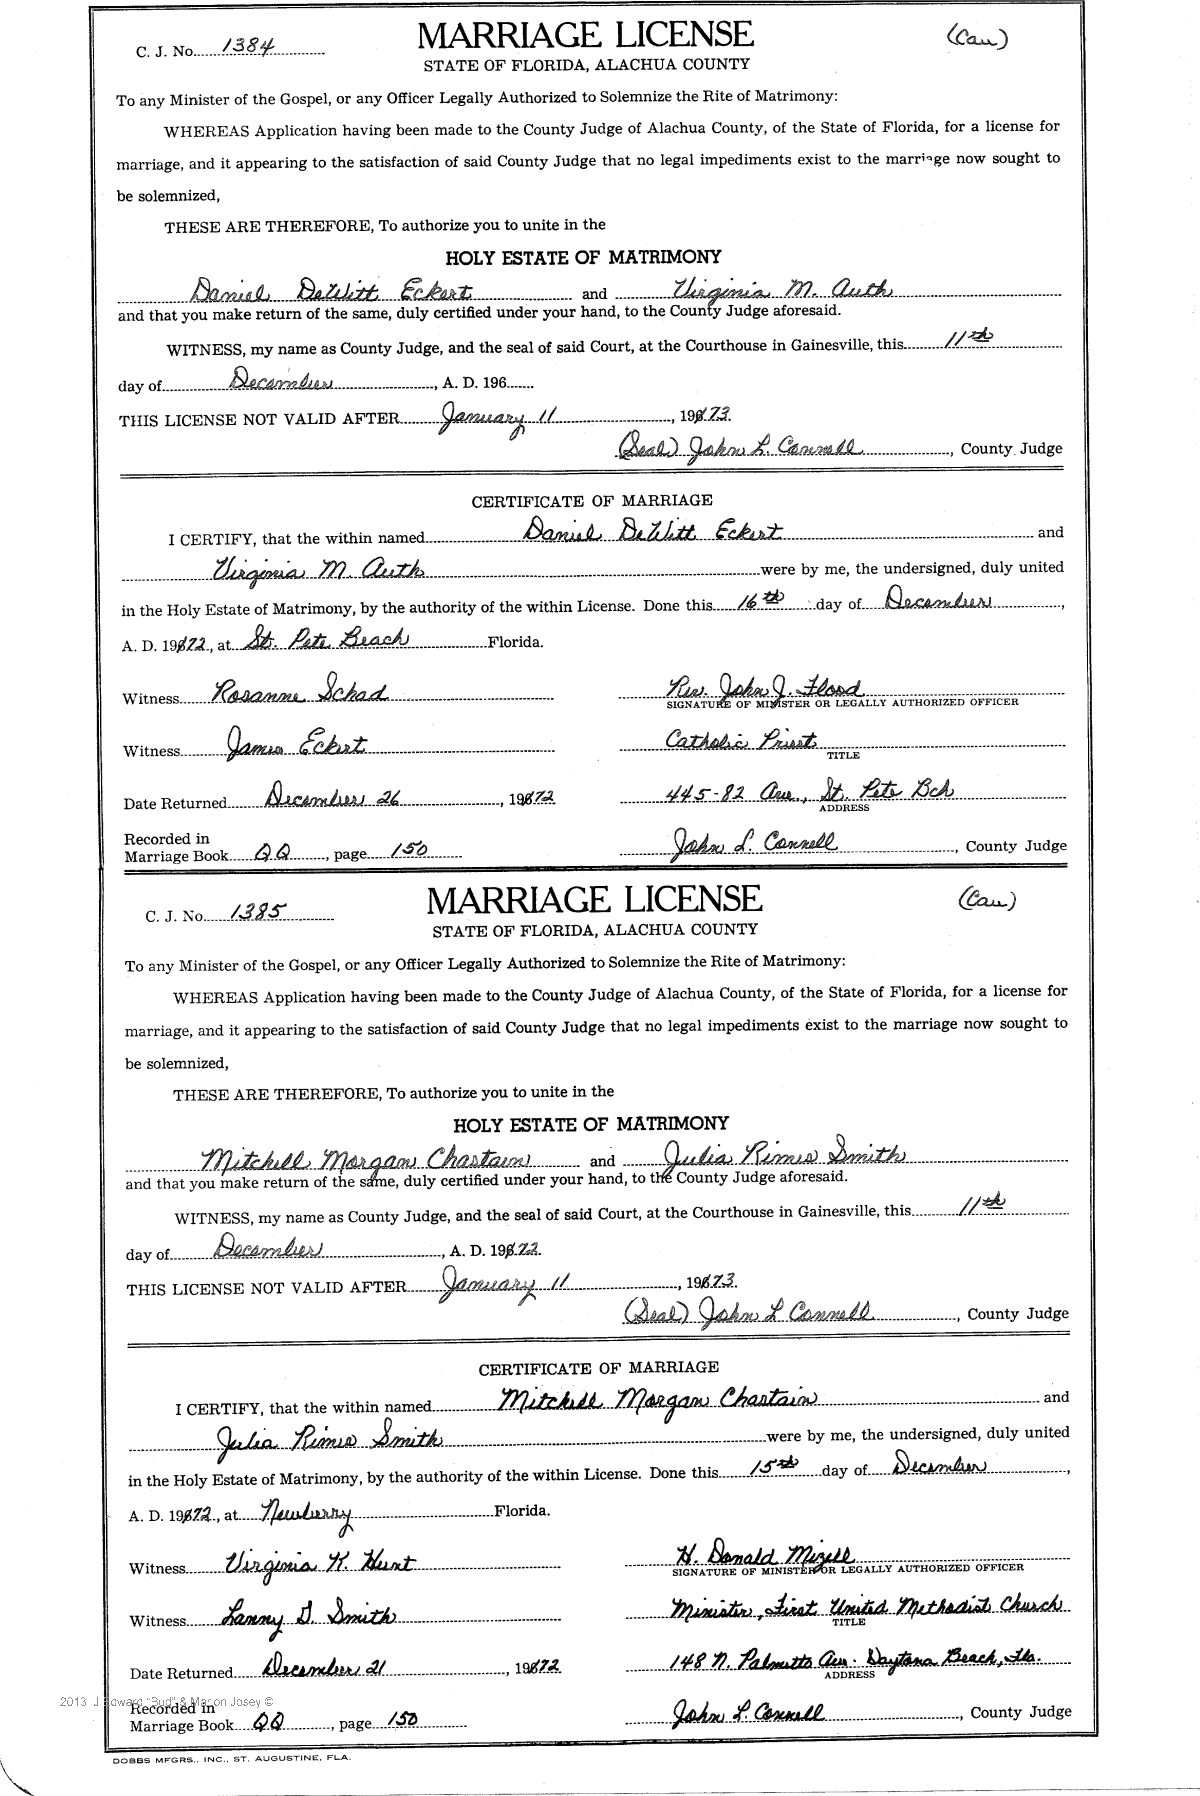 C. J. No. 1384 MARRIAGE LICENSE (Cau)
STATE OF FLORIDA, ALACHUA COUNTY
To any Minister of the Gospel, or any Officer Legally Authorized to Solemnize the Rite of Matrimony:
WHEREAS Application having been made to the County Judge of Alachua County, of the State of Florida, for a license for
marriage, and it appearing to the satisfaction of said County Judge that no legal impediments exist to the marriage now sought to
be solemnized,
THESE ARE THEREFORE, To authorize you to unite in the
HOLY ESTATE OF MATRIMONY
Daniel DeWitt Eckert and Virginia M. Auth
and that you make return of the same, duly certified under your hand, to the County Judge aforesaid.
WITNESS, my name as County Judge, and the seal of said Court, at the Courthouse in Gainesville, this 11th
day of December, A. D. 196
THIS LICENSE NOT VALID AFTER January 11, 1973.
(Seal) John L. Connell, County Judge
CERTIFICATE OF MARRIAGE
I CERTIFY, that the within named Daniel DeWitt Eckert and
Virginia M. Auth were by me, the undersigned, duly united
in the Holy Estate of Matrimony, by the authority of the within License. Done this 16th day of December,
A. D. 1972, at St. Pete Beach Florida.
Witness Rosanne Schad Rev. John J. Flood
SIGNATURE OF MINISTER OR LEGALLY AUTHORIZED OFFICER
Witness James Eckert Catholic Priest
TITLE
Date Returned December 26, 1972 445-82 Ave., St. Pete Bch
ADDRESS
Recorded in
Marriage Book QQ, page 150 John L. Connell, County Judge
C. J. No. 1385 MARRIAGE LICENSE (Cau)
STATE OF FLORIDA, ALACHUA COUNTY
To any Minister of the Gospel, or any Officer Legally Authorized to Solemnize the Rite of Matrimony:
WHEREAS Application having been made to the County Judge of Alachua County, of the State of Florida, for a license for
marriage, and it appearing to the satisfaction of said County Judge that no legal impediments exist to the marriage now sought to
be solemnized,
THESE ARE THEREFORE, To authorize you to unite in the
HOLY ESTATE OF MATRIMONY
Mitchell Morgan Chastain and Julia Rimes Smith
and that you make return of the same, duly certified under your hand, to the County Judge aforesaid.
WITNESS, my name as County Judge, and the seal of said Court, at the Courthouse in Gainesville, this 11th
day of December, A. D. 1972.
THIS LICENSE NOT VALID AFTER January 11, 1973.
(Seal) John L Connell, County Judge
CERTIFICATE OF MARRIAGE
I CERTIFY, that the within named Mitchell Morgan Chastain and
Julia Rimes Smith were by me, the undersigned, duly united
in the Holy Estate of Matrimony, by the authority of the within License. Done this 15th day of December,
A. D. 1972, at Newberry Florida.
Witness Virginia K. Hunt H. Donald Mizell
SIGNATURE OF MINISTER OR LEGALLY AUTHORIZED OFFICER
Witness Lanny G. Smith Minister, First United Methodist Church
TITLE
Date Returned December 21, 1972 148 N. Palmetto Ave. Daytona Beach, Fla.
ADDRESS
2013 J Edward "Bud" & Marion Josey ©
Recorded in
Marriage Book QQ, page 150 John L. Connell, County Judge
DOBBS MFGRS., INC., ST. AUGUSTINE, FLA.